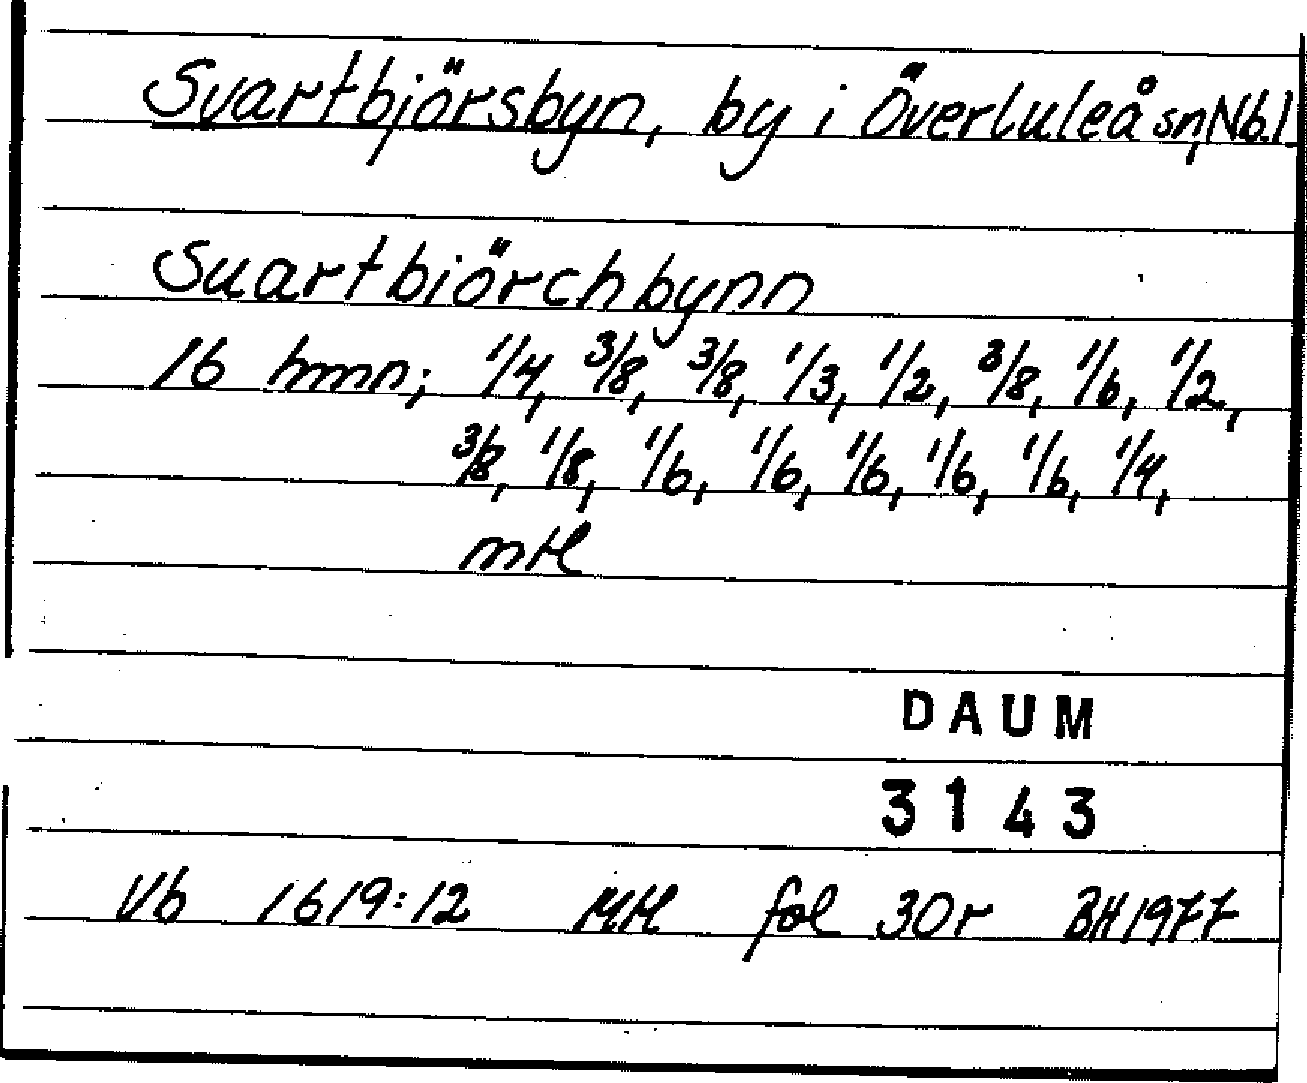 Svartbjörsbyn, by i Överluleå sn, Nb.l.
Suartbiörchbynn
16 hmn; 1/4, 3/8, 3/8, 1/3, 1/2, 3/8, 1/6, 1/2,
3/8, 1/8, 1/6, 1/6, 1/6, 1/6, 1/6, 1/4,
mtl
DAUM
3143
Vb 1619:12 Mtl fol 30r BH 1977